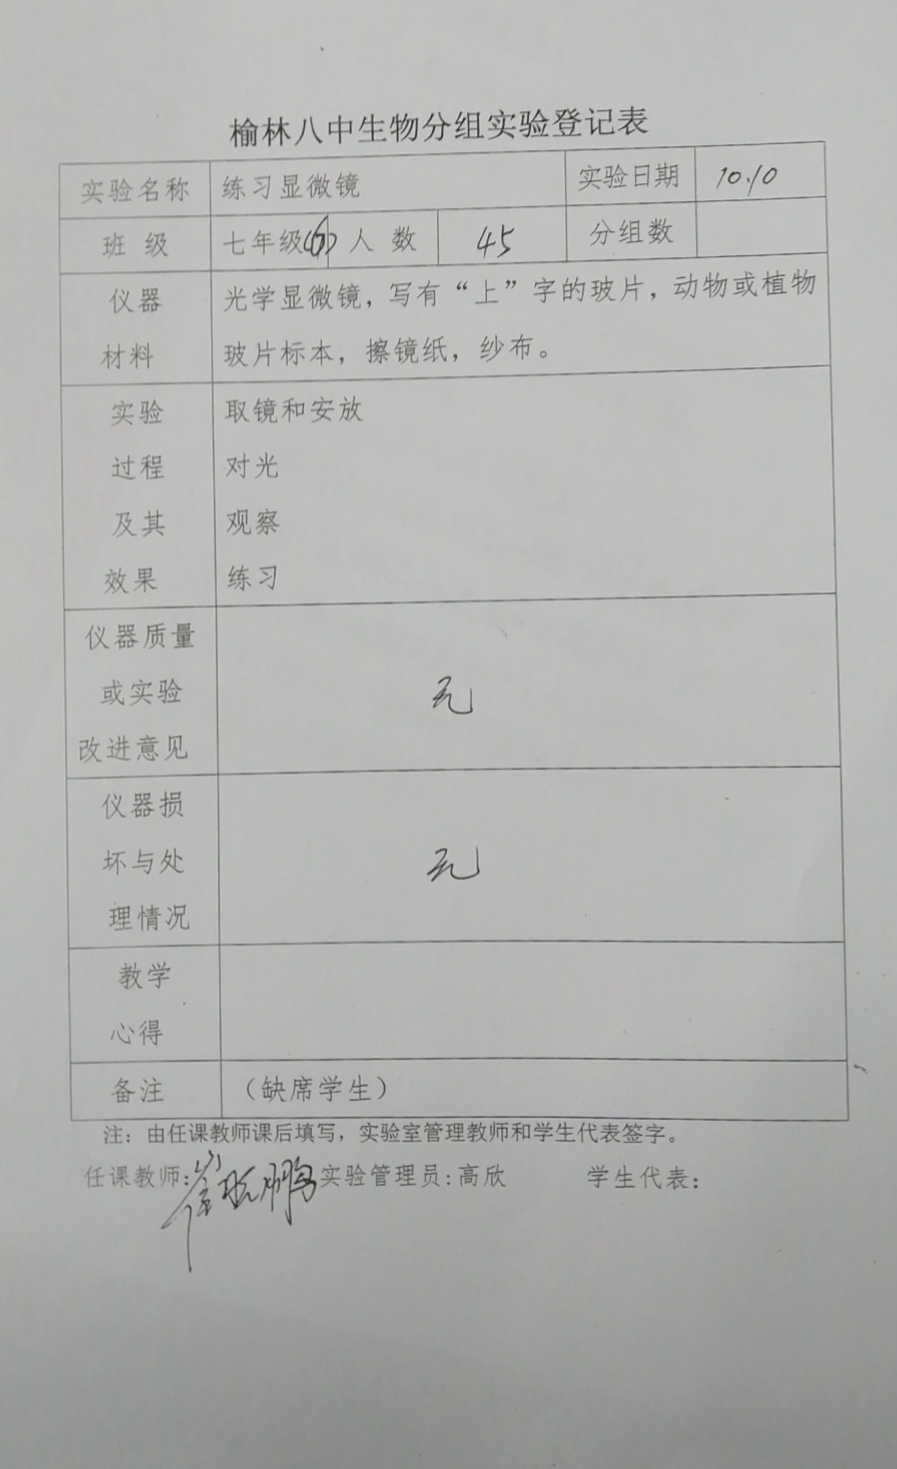 榆林八中生物分组实验登记表
实验名称 练习显微镜 实验日期 10.10
班 级 七年级 人 数 45 分组数
仪器 光学显微镜，写有“上”字的玻片，动物或植物
材料 玻片标本，擦镜纸，纱布。
实验 取镜和安放
过程 对光
及其 观察
效果 练习
仪器质量
或实验 无
改进意见
仪器损
坏与处 无
理情况
教学
心得
备注 （缺席学生）
注：由任课教师课后填写，实验室管理教师和学生代表签字。
任课教师: 实验管理员:高欣 学生代表: